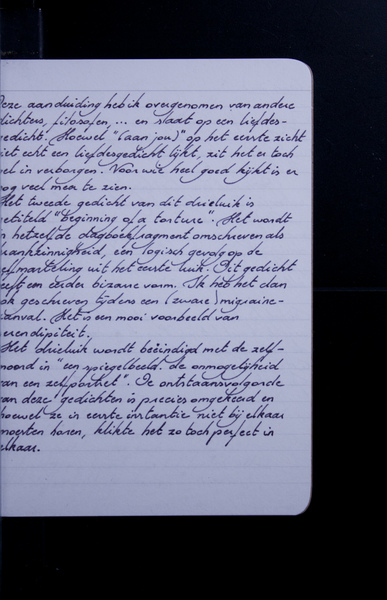 Deze aanduiding heb ik overgenomen van andere
dichters, filosofen, ... en slaat op een liefdes-
gedicht. Hoewel "(aan jou)" op het eerste zicht
niet echt een liefdesgedicht lijkt, zit het er toch
wel in verborgen. Voor wie heel goed kijkt is er
nog veel meer te zien.
Het tweede gedicht van dit drieluik is
getiteld "beginning of a torture". Het wordt
in hetzelfde dagboekfragment omschreven als
krankzinnigheid, een logisch gevolg op de
zelfmarteling uit het eerste luik. Dit gedicht
heeft een eerder bizarre vorm. Ik heb het dan
ook geschreven tijdens een (zware) migraine-
aanval. Het is een mooi voorbeeld van
serendipiteit.
Het drieluik wordt beëindigd met de zelf-
moord in "een spiegelbeeld. de onmogelijkheid
van een zelfportret". De ontstaansvolgorde
van deze gedichten is precies omgekeerd en
hoewel ze in eerste instantie niet bij elkaar
moesten horen, klikte het zo toch perfect in
elkaar.